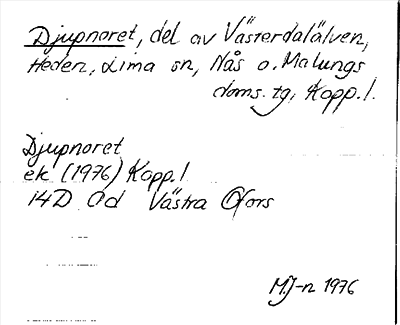 Djupnoret, del av Västerdalälven,
Heden, Lima sn, Nås o. Malungs
doms. tg, Kopp. l.
Djupnoret
ek (1976) Kopp. l
14D 0d Västra Ofors
M.J-n 1976